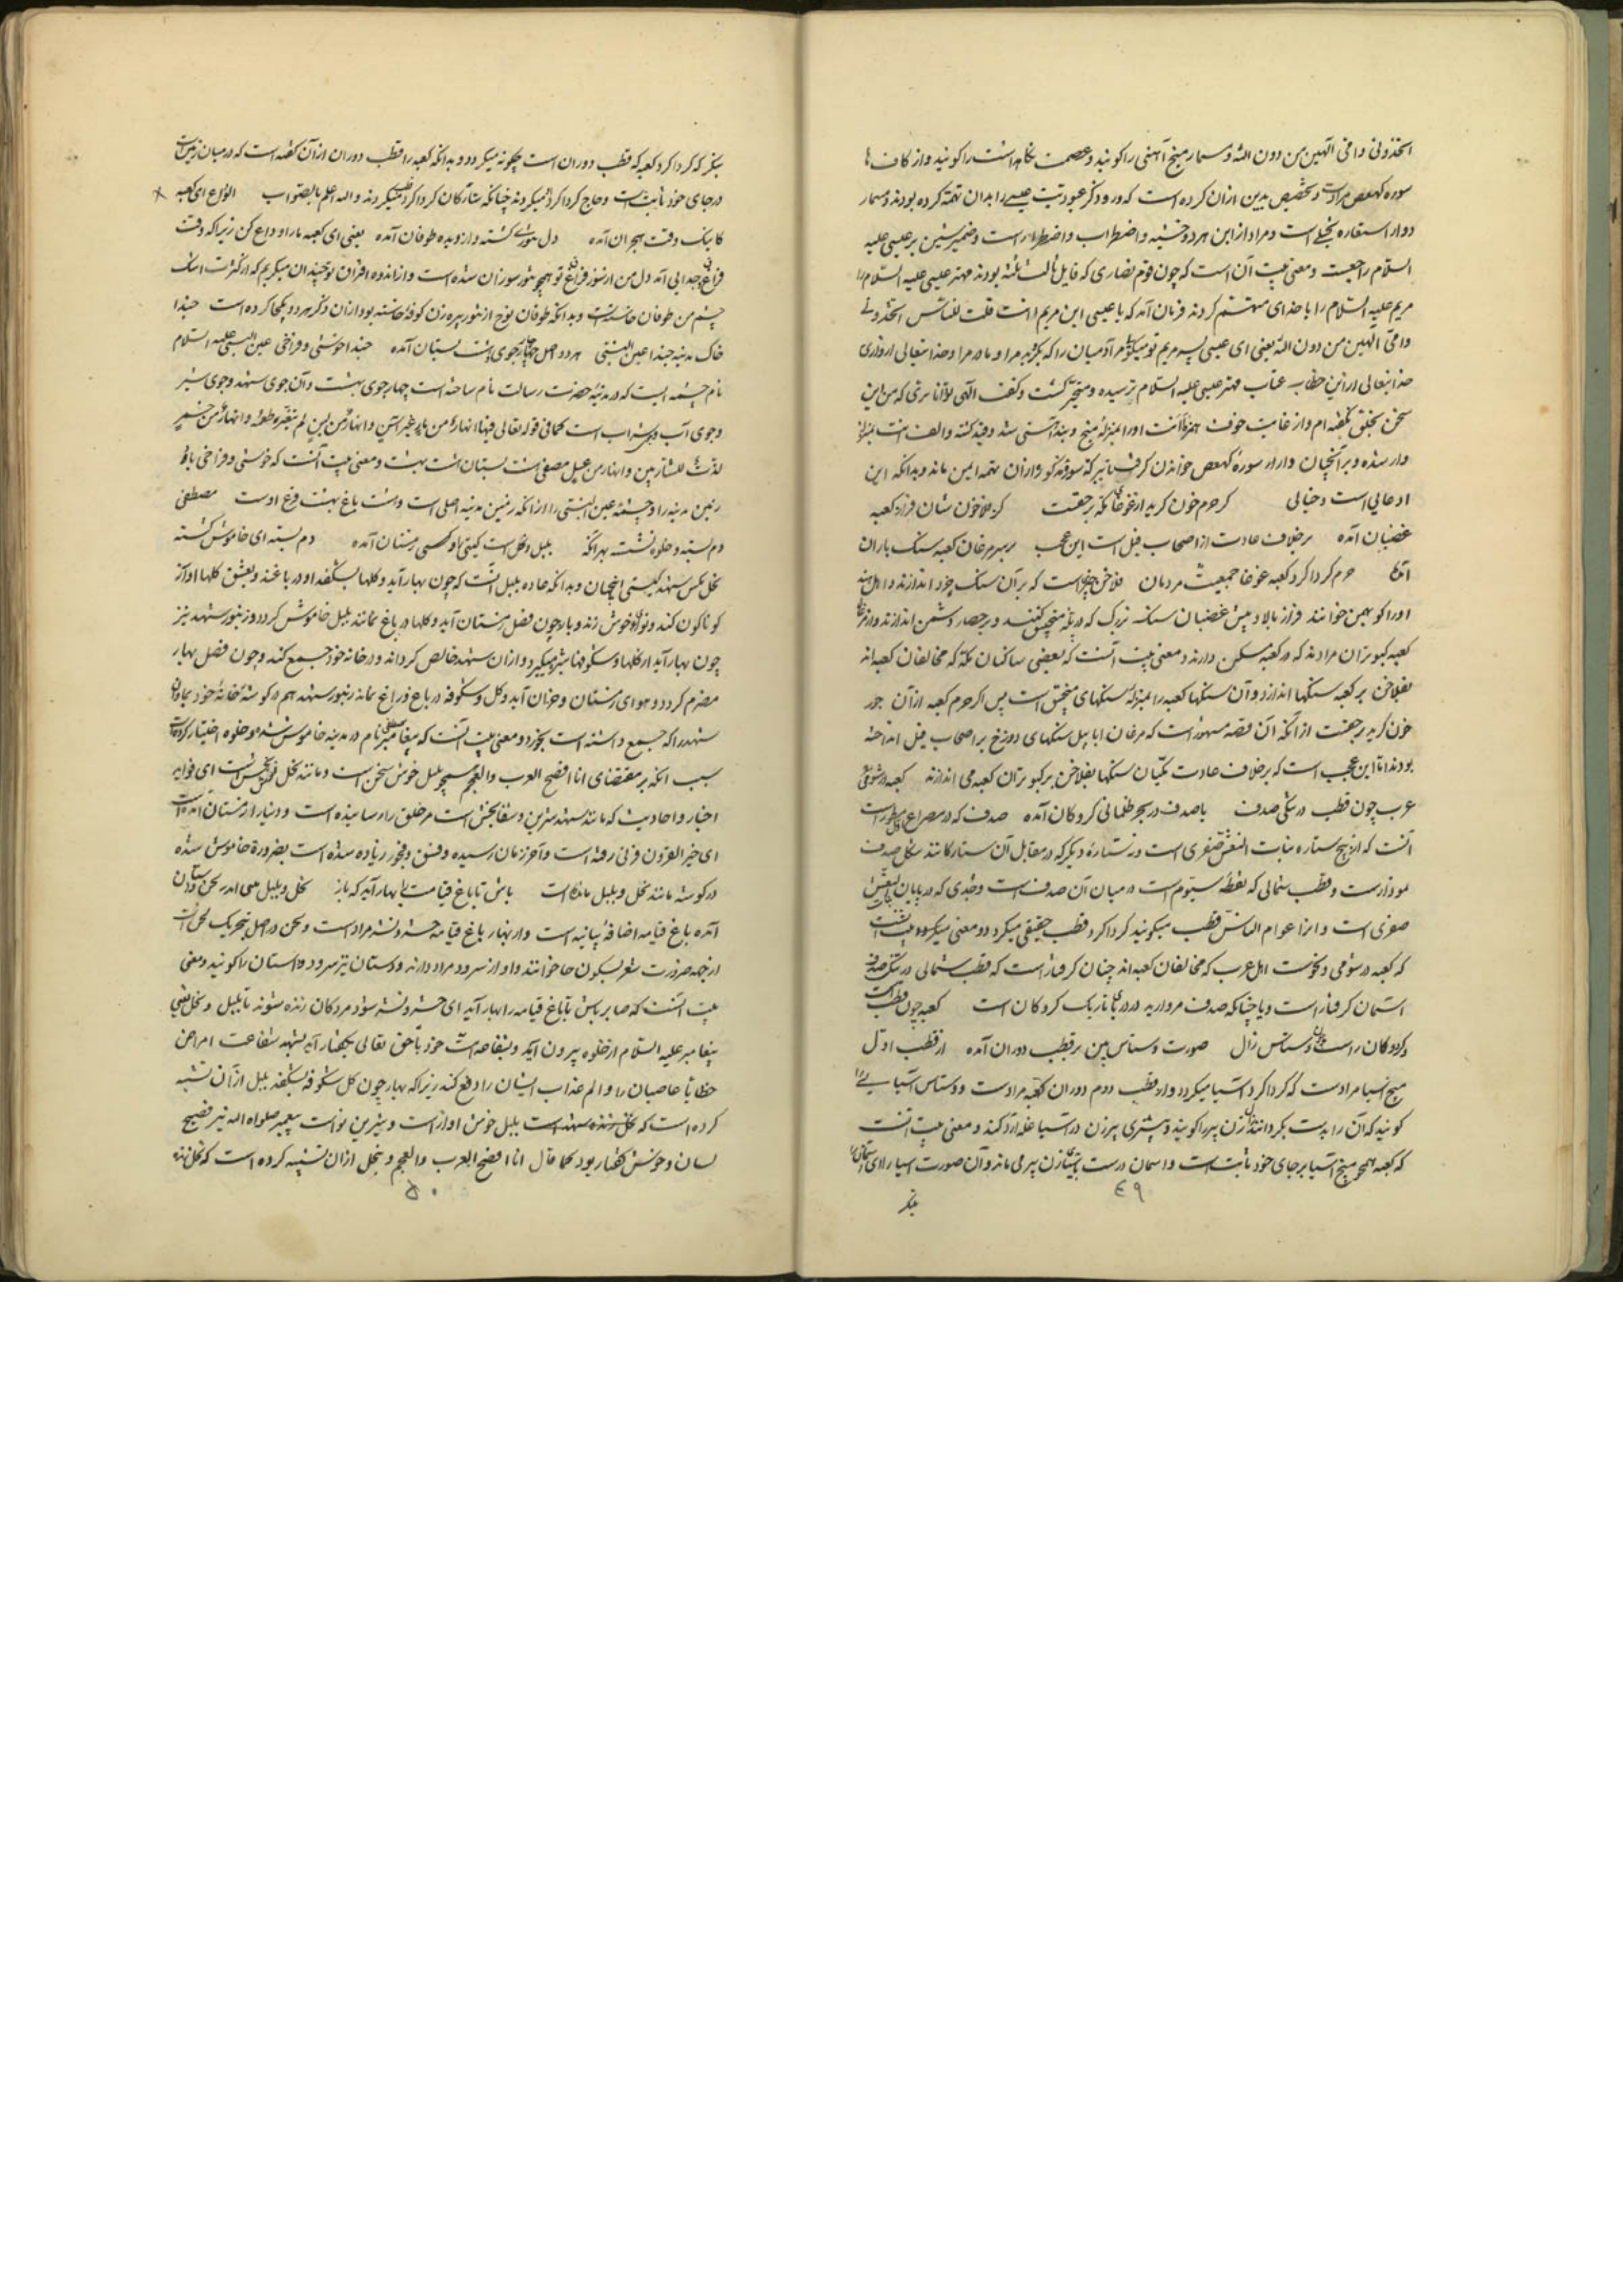 اتخذونی و امی الهین من دون الله و مسمار میخ آهنی را کویند و عصمت نکاهداشت را کویند و از کاف ها
سوره کهیعص مرادست و تخصیص بدین ازان کرده است که درو ذکر عبودیت عیسی را بدان تهمة کرده بودند و مسمار
دوار استعاره است و مراد ازاین هر دو خشیه و اضطراب و اضطرارست و ضمیر شین بر عیسی علیه
السلام راجعست و معنی بیت آن است که چون قوم نصاری که قایل ثالث ثلثة بودند مهتر عیسی علیه السلام را
مریم علیه السلام را با خدای متهم کردند فرمان آمد که یا عیسی ابن مریم ءانت قلت للناس اتخذونی
و امی الهین من دون الله یعنی ای عیسی پسر مریم تو میکوئی مر آدمیان را که بکیرید مرا و مادر مرا و خدایتعالی
خدایتعالی ازین خطاب عتاب مهتر عیسی علیه السلام ترسیده و متحیر کشت و کفت الهی تو دانا تری که من این
سخن بخلق نکفته ام و از غایت خوف
دار شده و برانجهان و از سوره کهیعص خواندن
ادعایی است و خیالی کر حرم خون کرید از غوغای مکه بر حقست کز
غضبان آمده بر خلاف عادت از اصحاب فیل است این عجب بر سر مرغان کعبه سنک باران
آمده حرم کرداکرد کعبه غوغا جمعیت مردمان فلاخن چیزیست که بر آن سنک خرد اندازند و اهل هند
اورا کوبهن خوانند فراز بالا و پیش غضبان سنک بزرک که در پله منجنیق کنند و بر حصار دشمن اندازند و از مرغان
کعبه کبوتران مرادند که در کعبه مسکن دارند و معنی بیت آنست که بعضی ساکنان مکه که مخالفان کعبه اند
بفلاخن بر کعبه سنکها اندازند و آن سنکها کعبه را بمنزله سنکهای منجنیق است پس اکر حرم کعبه ازآن جور
خون کرید بر حقست از انکه آن قصه مشهورست که مرغان ابابیل سنکهای دوزخ بر اصحاب فیل انداخته
بودند اما این عجب است که بر خلاف عادت مکیان سنکها بفلاخن بر کبوتران کعبه می اندازند کعبه در شومی
عرب چون قطب در تنکی صدف یا صدف در بحر ظلمانی کروکان آمده صدف که در مصراع اول مذکورست
آنست که از پنج ستاره بنات النعش صغری است و سه ستاره دیکر که در مقابل آن ستارکانند شکل صدف
نمودارست و قطب شمالی که نقطه موهوم است در میان آن صدف است و جدی که در پایان بنات النعش
صغری است و انرا عوام الناس قطب میکویند کرداکرد قطب حقیقی میکردد و معنی بیت آنست
که کعبه در شومی و نحوست اهل عرب که مخالفان کعبه اند چنان کرفتارست که قطب شمالی در تنکی صدف
آسمان کرفتارست و یا چنانکه صدف مروارید در دریای تاریک کروکان است کعبه چون قطب است
و کردونکان راست دستاس زال صورت دستاس بین بر قطب دوران آمده از قطب اول
میخ آسیا مرادست که کرداکرد آسیا میکردد و از قطب دوم دوران کعبه مرادست و دستاس آسیایی را
کویند که آن را بدست بکردانند زال زن پیر را کویند و بیشتری پیرزن در آسیا غله آرد کند و معنی بیت آنست
که کعبه همچو میخ آسیا بر جای خود ثابت است و آسمان درست به آسیای زن پیر می ماند و آن صورت آسیا را
٤٩
بنکر
بنکر که کرداکرد کعبه که قطب دوران است چکونه میکردد و بدانکه کعبه را قطب دوران ازآن کفته است که در میان زمین است
در جای خود ثابت است و حاج کرداکرد میکردند چنانکه ستارکان کرداکرد قطب میکردند و الله اعلم بالصواب الوداع ای کعبه
کاینک وقت هجران آمده دل تنوری کشته و از دیده طوفان آمده یعنی ای کعبه مارا وداع کن زیرا که وقت
فراق و جدایی آمد دل من از سوز فراق تو همچو تنور سوزان شده است و از اندوه افتراق تو چندان میکریم که از کثرت اشک
چشم من طوفان خاسته است و بدانکه طوفان نوح از تنور پیره زن کوفه خاسته بود ازان ذکر هر دو یکجا کرده است حبذا
خاک مدینه حبذا عین النبی هر دو اصل چار جوی هشت بستان آمده حبذا خوشی و فراخی عین النبی علیه السلام
نام چشمه ایست که در مدینه حضرت رسالت بنام ساخته است چهار جوی بهشت و آن جوی شهد و جوی شیر
و جوی آب و جوی شراب است کما فی قوله تعالی فیها انهار من ماء غیر آسن و انهار من لبن لم یتغیر طعمه و انهار من خمر
لذة للشاربین و انهار من عسل مصفی هشت بستان هشت بهشت و معنی بیت آنست که خوشی و فراخی باد
زمین مدینه را و چشمه عین النبی را از انکه زمین مدینه اصلی است و هشت باغ بهشت فرع اوست مصطفی
دم بسته و خلوت نشسته بهر آنکه بلبل و نحل است کیتی را و کیتی را زمستان آمده دم بسته ای خاموش کشته
نحل مکس شهد کیتی این جهان و بدانکه عاده بلبل آنست که چون بهار آید و کلها بشکفد او در باغ بعشق کلها آواز
کوناکون کند و نوای خوش زند و باز چون فصل زمستان آید و کلها در باغ نماند بلبل خاموش کردد و زنبور شهد نیز
چون بهار آید از کلها و شکوفها شیره میکیرد و ازان شهد خالص کرداند و در خانه خود جمع کند و چون فصل بهار
منصرم کردد و هوای زمستان و خزان آید و کل و شکوفه در باغ و راغ نماند زنبور شهد هم در کوشه خانه خود بماند و آن
شهد را که جمع داشته است بخورد و معنی بیت آنست که پیغامبر نام در مدینه خاموش شده و خلوه اختیار کرده است
سبب آنکه بر مقتضای انا افصح العرب و العجم همچو بلبل خوش سخن است و مانند نحل ای فواید
اخبار و احادیث که مانند شهد شیرین و شفابخش است مر خلق را رسانیده است و دنیا را زمستان آمده است
ای خیر القرون قرنی رفته است و آخر زمان رسیده و فسق و فجور زیاده شده است بضرورة خاموش شده
در کوشه مانند نحل و بلبل مانده است باش تا باغ قیامت را بهار آید که باز نحل و بلبل
آمده باغ قیامه اضافه بیانیه است و از بهار باغ قیامه حشر و نشر مرادست و لحن در اصل بتحریک لحن است
از جهة ضرورت شعر بسکون حا خوانند و اواز سرود مراد دارند و دستان نیز سرود و داستان را کویند و معنی
بیت آنست که صابر باش تا باغ قیامه را بهار آید ای حشر و نشر شود مردکان زنده شوند تا بلبل و نحل یعنی
پیغامبر علیه السلام از خلوه بیرون آید و بشفاعة امت خود با حق تعالی بکفتار آید شهد شفاعت امراض
خطایا عاصیان را و الم عذاب ایشان را دفع کند زیرا که بهار چون کل شکوفه بشکفد بلبل ازآن تشبیه
کرده است که بلبل خوش آواز است و شیرین نواست پیغمبر صلوات الله نیز فصیح
لسان و خوش کفتار بود کما قال انا افصح العرب و العجم و بنحل ازان تشبیه کرده است که نحل
٥٠